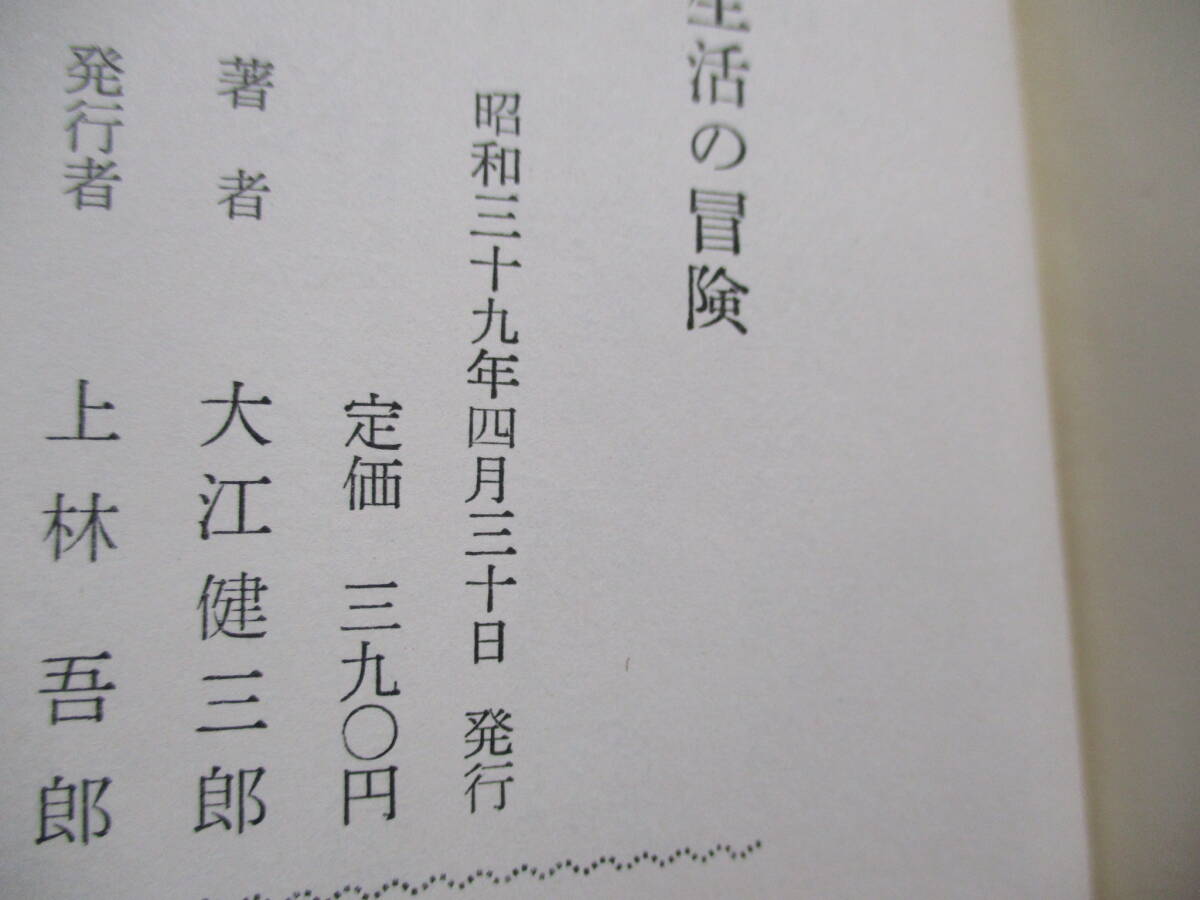 生活の冒険
昭和三十九年四月三十日　発行
定価　三九〇円
著者　大江健三郎
発行者　上林吾郎